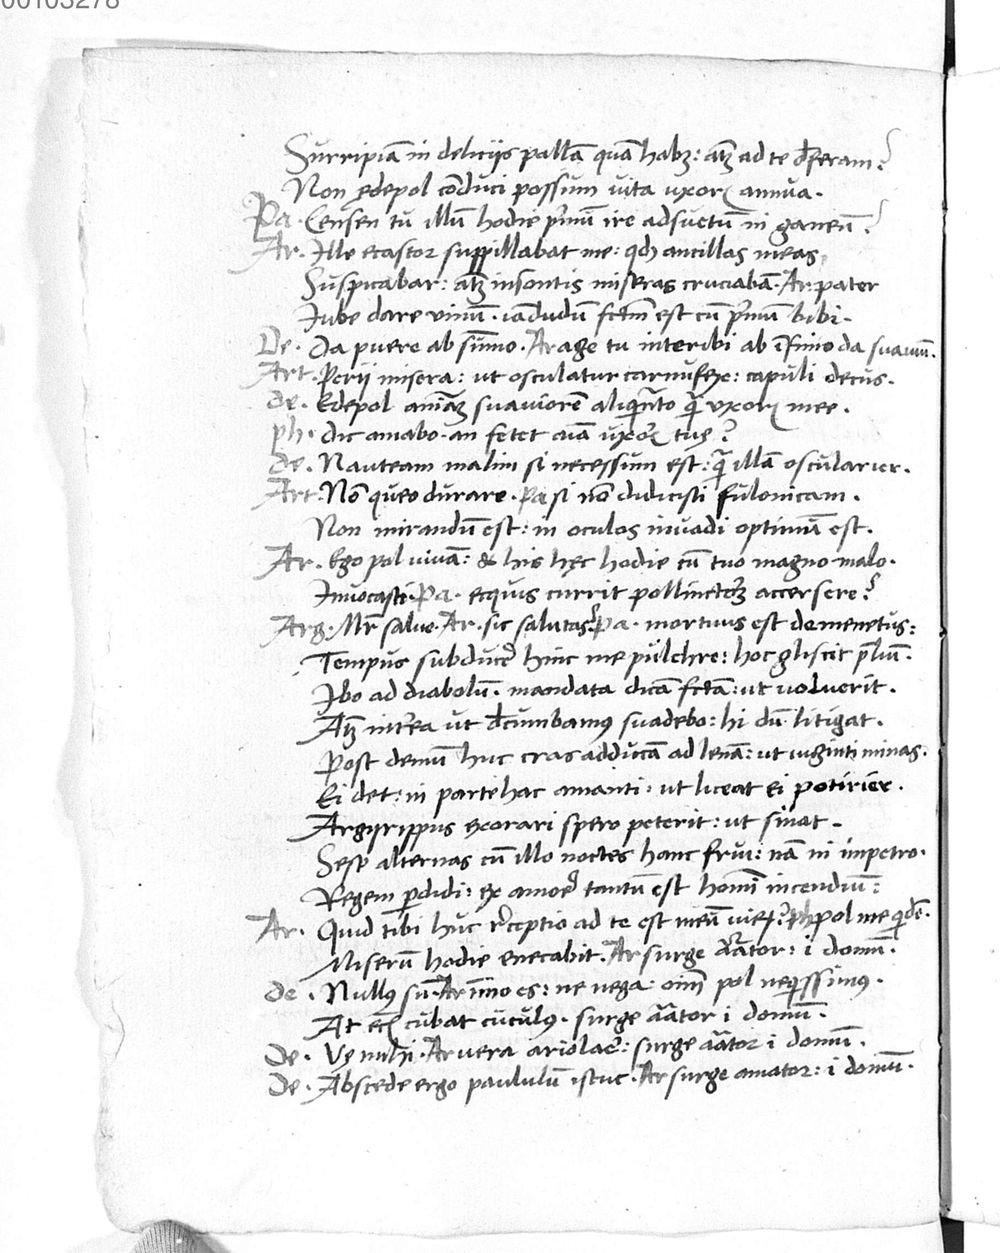 00103278
Surripiā in delicijs pallā quā habꝫ: atꝫ ad te d̄feram?
Non ędepol cōduci possum uita uxorꝭ annua.
Pa. Censen tu illū hodie p̄mū ire adsuetū in ganeū?
Ar. Ille ecastor suppillabat me: qđ ancillas meas
Suspicabar: atꝫ insontis miseras cruciabā. Ar: pater
Jube dare vinū. iādudū factm̄ est cū p̄mū bibi.
De. Da puere ab sūmo. Ar age tu interibi ab īfimo da suauiū.
Art. Perij misera: ut osculatur carnufex: capuli decus.
de. Edepol aniāꝫ suauiorē aliquāto q̄ uxorꝭ mee.
ph. dic amabo. an fetet aīa uxorꝭ tuę?
de. Nauteam malim si necessum est: q̄ illā oscularier.
Art. Nō queo durare. Pa si nō didicisti fulonicam.
Non mirandū est: in oculos inuadi optimū est.
Ar. Ego pol uiuā: & his hęc hodie cū tuo magno malo.
Inuocasti. Pa. ecquis currit pollinctoꝫ accersere?
Arg. Mr̄ salue. Ar. sic salutas? Pa. mortuus est demenetus:
Tempus subducer̄ hinc me pulchre: hoc gliscit p̄liū.
Ibo ad diabolū. mandata dicā factā: ut uoluerit.
Atꝫ int̄ea ut d̄cumbamꝰ suadebo: hi dū litigāt.
Post demū huc cras adducā ad lenā: ut uiginti minas.
Ei det: in parte hac amanti: ut liceat Ei potirier.
Argyrippus exorari spero poterit: ut sinat.
Sese alternas cū illo noctes hanc frui: nā ni impetro.
Regem p̄didi: ex amor̄ tantū est homī incendiū:
Ar. Quid tibi huc r̄ceptio ad te est meū uirꝫ? ph pol me qdē.
Miserū hodie enecabit. Ar surge āator: i domū.
de. Nullꝰ sū. Ar īmo es: ne nega: oīm̄ pol neqssimꝰ.
At ecꝭ cubat cuculꝰ. surge āator i domū.
De. Vę mihi. Ar uera ariolar̄: surge āator i domū.
De. Abscede ergo paululū istuc. Ar surge amator: i domū.